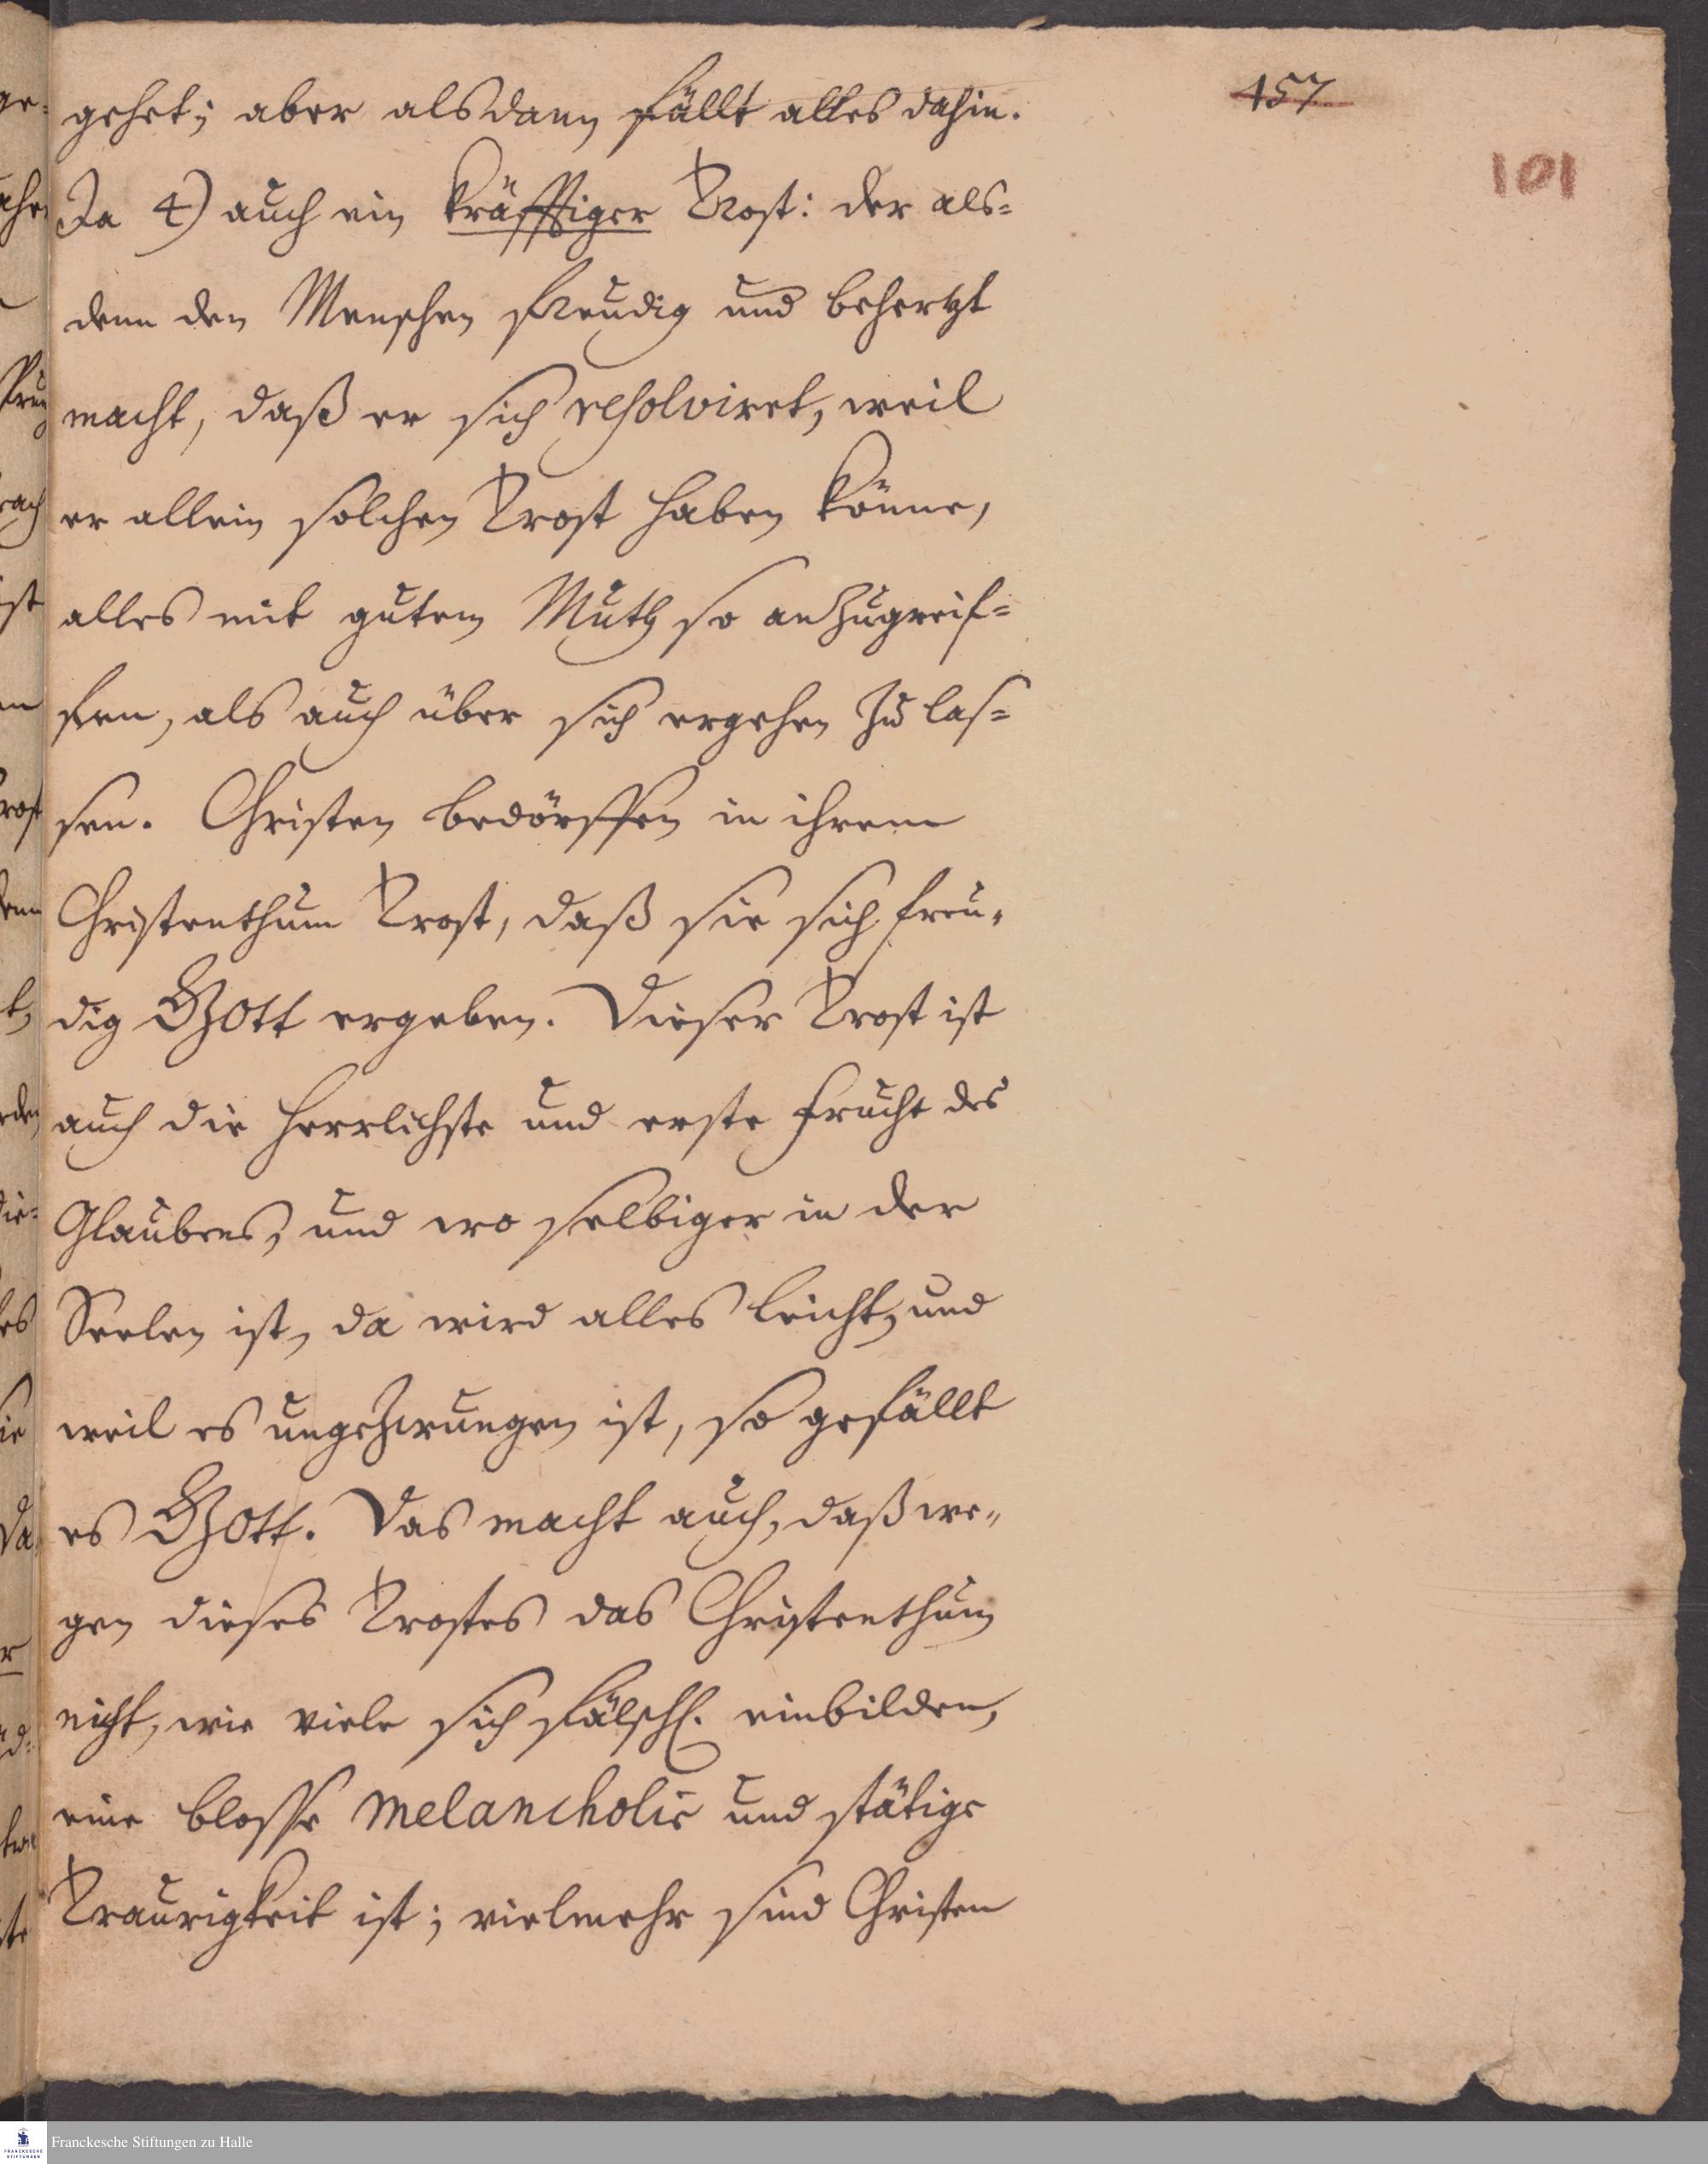 457
101
gehet; aber alsdann fällt alles dahin.
Ja 4) auch ein kräfftiger Trost: der als=
denn den Menschen freudig und behertzt
macht, daß er sich resolviret, weil
er allein solchen Trost haben könne,
alles mit gutem Muth so anzugreif=
fen, als auch über sich ergehen zu las=
sen. Christen bedörffen in ihrem
Christenthum Trost, daß sie sich freu=
dig GOtt ergeben. Dieser Trost ist
auch die herrlichste und erste Frucht des
Glaubens, und wo selbiger in der
Seelen ist, da wird alles leicht, und
weil es ungezwungen ist, so gefällt
es GOtt. Das macht auch, daß we=
gen dieses Trostes das Christenthum
nicht, wie viele sich fälschl. einbilden,
eine blosse melancholie und stätige
Traurigkeit ist; vielmehr sind Christen
FRANCKESCHE
STIFTUNGEN
Franckesche Stiftungen zu Halle